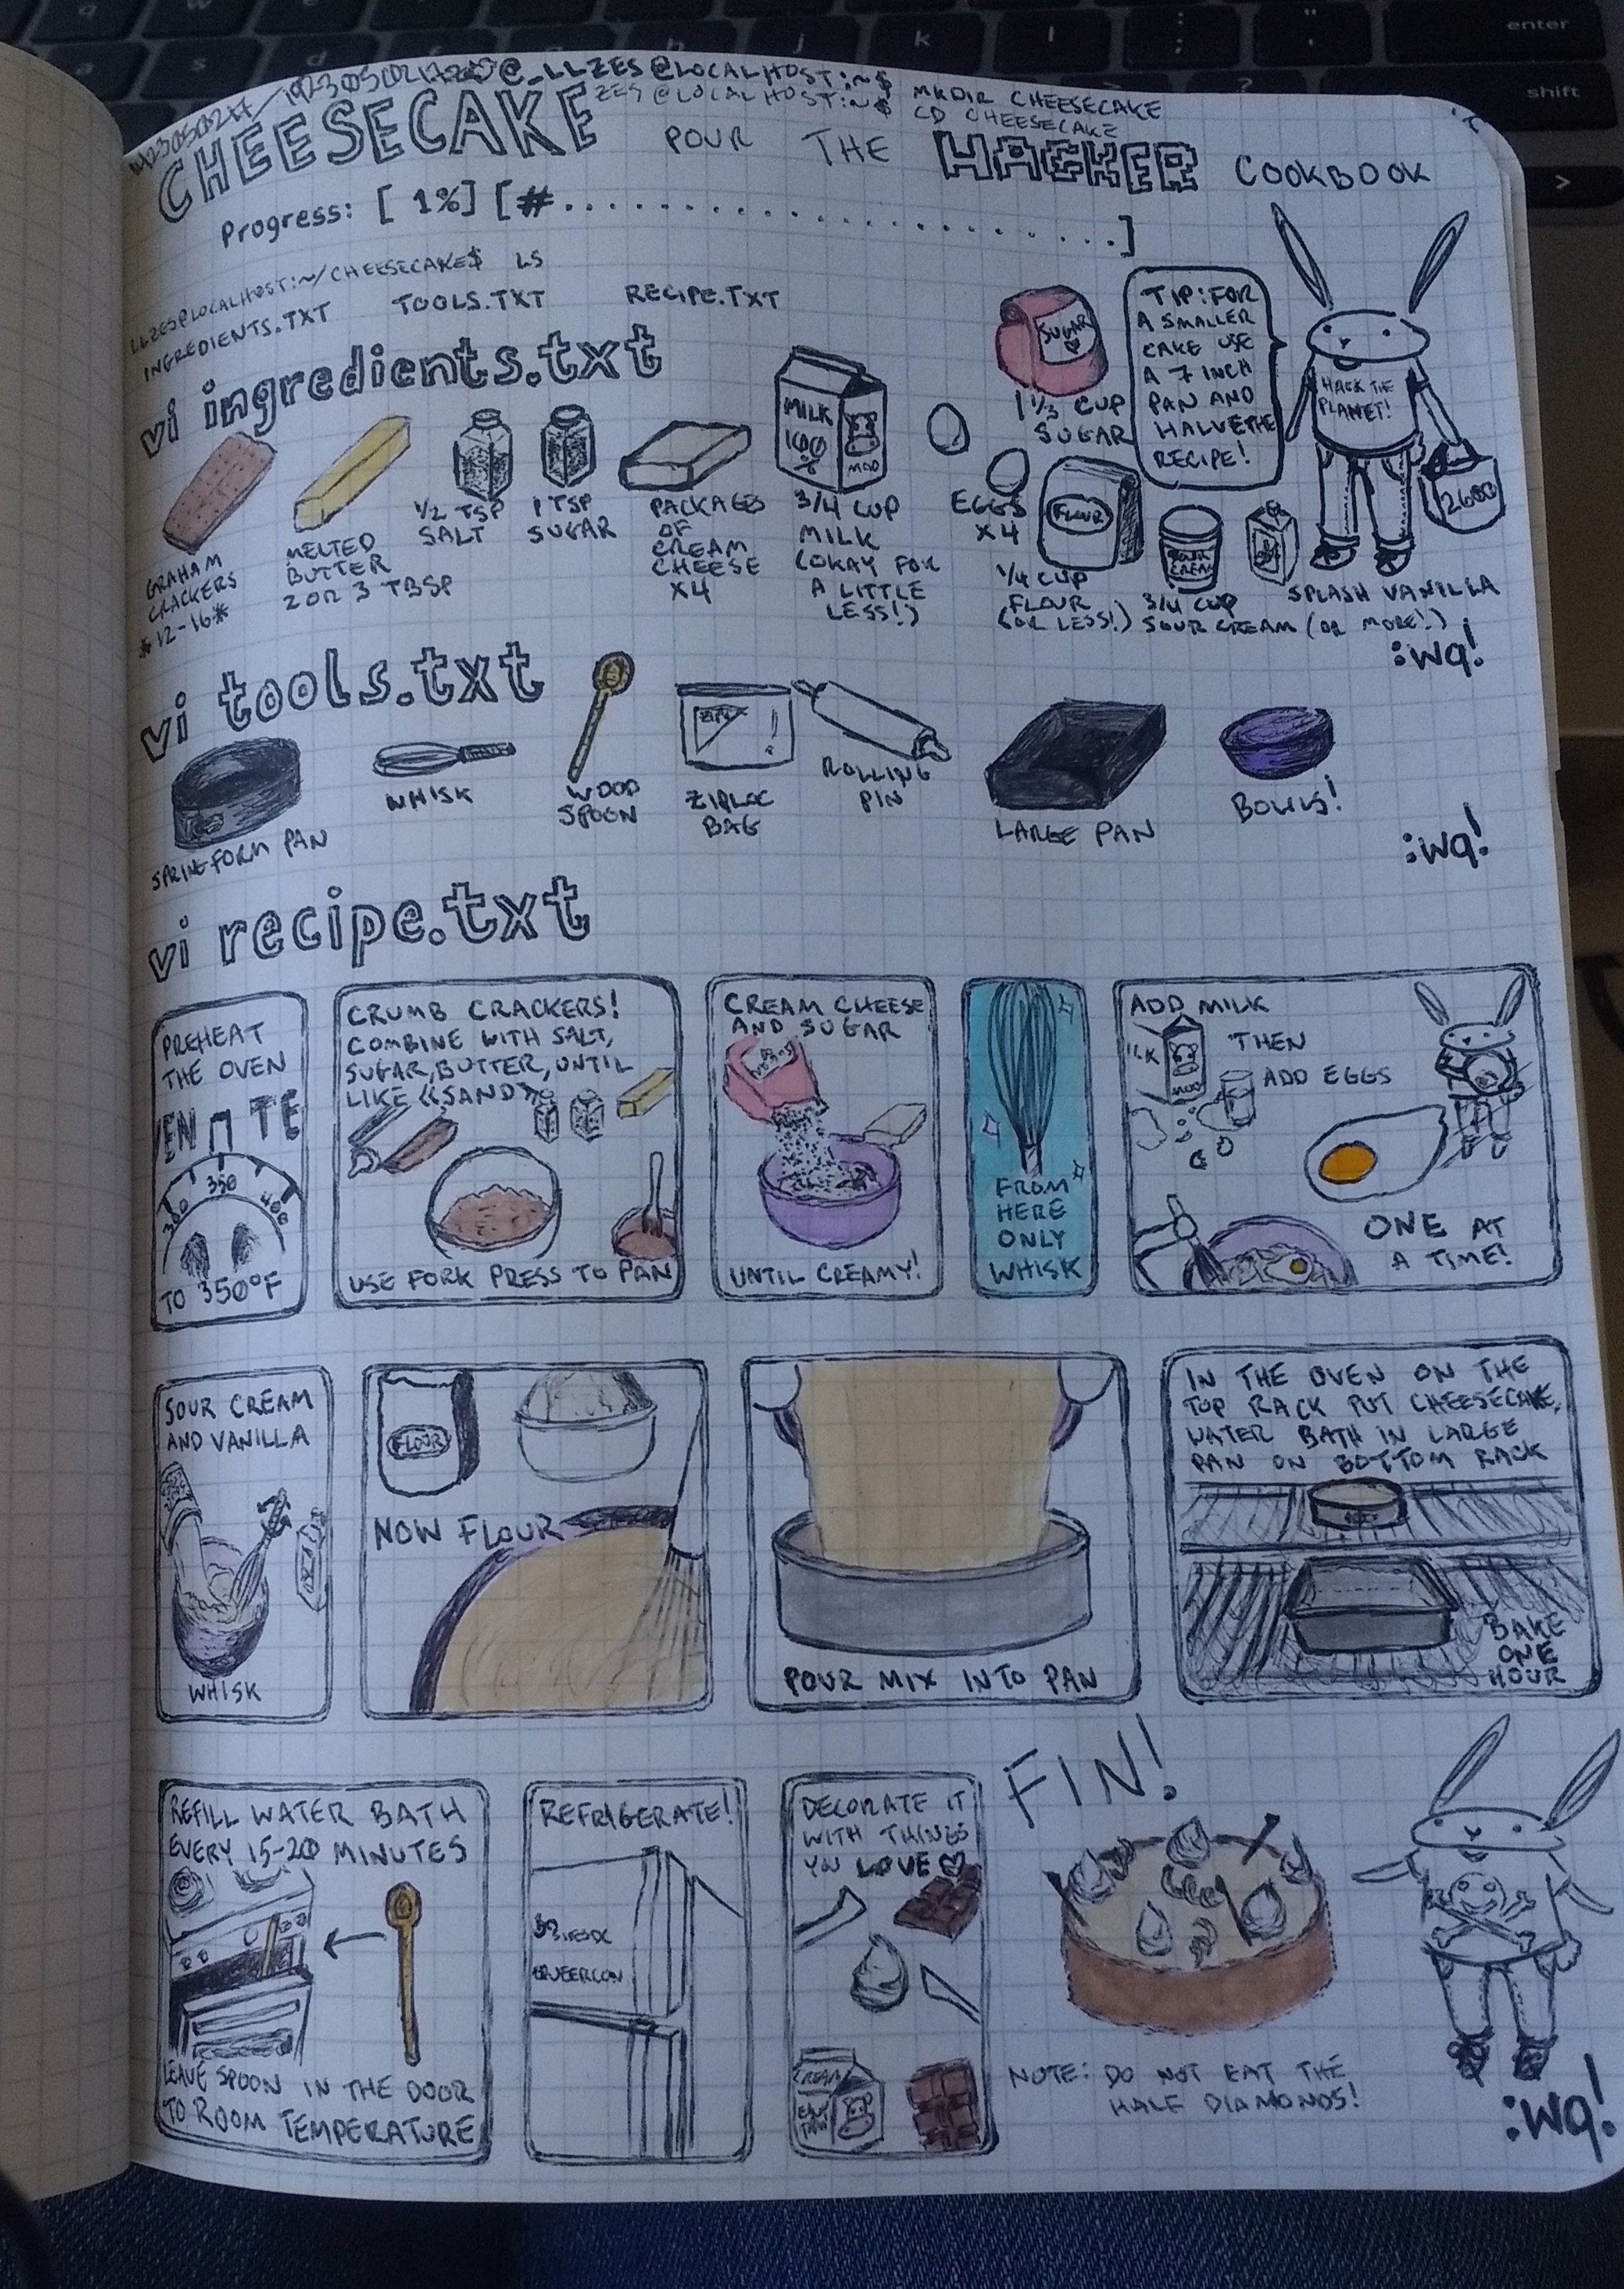 @LOCALHOST:~$ MKDIR CHEESECAKE
@LOCALHOST:~$ CD CHEESECAKE
CHEESECAKE POUR THE HACKER COOKBOOK
Progress: [ 1%] [#.......................]
LLZES@LOCALHOST:~/CHEESECAKE$ LS
INGREDIENTS.TXT TOOLS.TXT RECIPE.TXT
vi ingredients.txt
GRAHAM
CRACKERS
*12-16*
MELTED
BUTTER
2 OR 3 TBSP
1/2 TSP
SALT
1 TSP
SUGAR
PACKAGES
OF
CREAM
CHEESE
X4
MILK
100
%
MOO
3/4 CUP
MILK
(OKAY FOR
A LITTLE
LESS!)
EGGS
X4
SUGAR
1 1/3 CUP
SUGAR
FLOUR
1/4 CUP
FLOUR
(OR LESS!)
SOUR
CREAM
3/4 CUP
SOUR CREAM (OR MORE!)
SPLASH VANILLA
TIP: FOR
A SMALLER
CAKE USE
A 7 INCH
PAN AND
HALVE THE
RECIPE!
HACK THE
PLANET!
2600
:wq!
vi tools.txt
SPRINGFORM PAN
WHISK
WOOD
SPOON
ZIPLOC
BAG
ROLLING
PIN
LARGE PAN
BOWLS!
:wq!
vi recipe.txt
PREHEAT
THE OVEN
300 350 400
TO 350°F
CRUMB CRACKERS!
COMBINE WITH SALT,
SUGAR, BUTTER, UNTIL
LIKE «SAND»
USE FORK PRESS TO PAN
CREAM CHEESE
AND SUGAR
UNTIL CREAMY!
FROM
HERE
ONLY
WHISK
ADD MILK
ILK
MOO
THEN
ADD EGGS
ONE AT
A TIME!
SOUR CREAM
AND VANILLA
WHISK
FLOUR
NOW FLOUR
POUR MIX INTO PAN
IN THE OVEN ON THE
TOP RACK PUT CHEESECAKE,
WATER BATH IN LARGE
PAN ON BOTTOM RACK
BAKE
ONE
HOUR
REFILL WATER BATH
EVERY 15-20 MINUTES
LEAVE SPOON IN THE DOOR
TO ROOM TEMPERATURE
REFRIGERATE!
DECORATE IT
WITH THINGS
YOU LOVE
CREAM
FIN!
NOTE: DO NOT EAT THE
HALF DIAMONDS!
:wq!
enter
shift